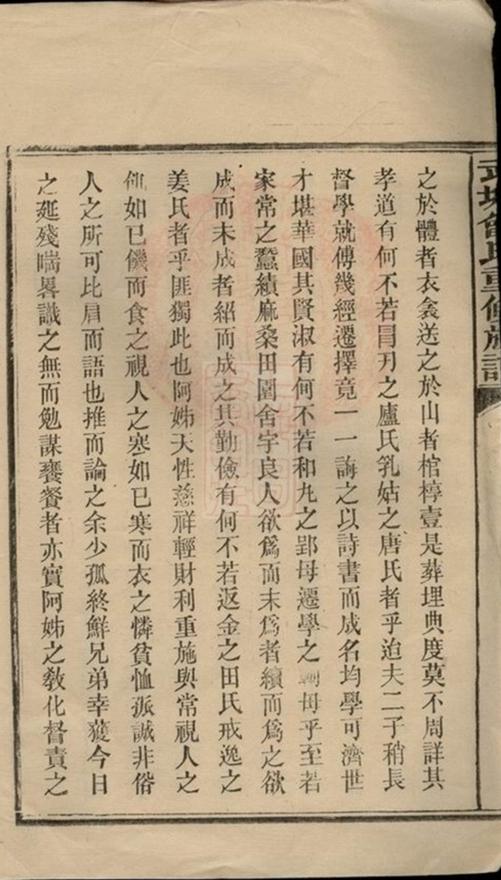 之於體者衣衾送之於山者棺椁壹是葬埋典度莫不周詳其
孝道有何不若冒刃之盧氏乳姑之唐氏者乎迨夫二子稍長
督學就傅幾經遷擇竟一一誨之以詩書而成名均學可濟世
才堪華國其賢淑有何不若和丸之郢母遷學之母乎至若
家常之蠶績麻桑田園舍宇良人欲爲而未爲者續而爲之欲
成而未成者紹而成之其勤儉有何不若返金之田氏戒逸之
姜氏者乎匪獨此也阿姊天性慈祥輕財利重施與常視人之
飢如已饑而食之視人之寒如已寒而衣之憐貧恤孤誠非俗
人之所可比肩而語也推而論之余少孤終鮮兄弟幸獲今日
之延殘喘畧識之無而勉謀饔餐者亦實阿姊之敎化督責之
曾氏重修族譜